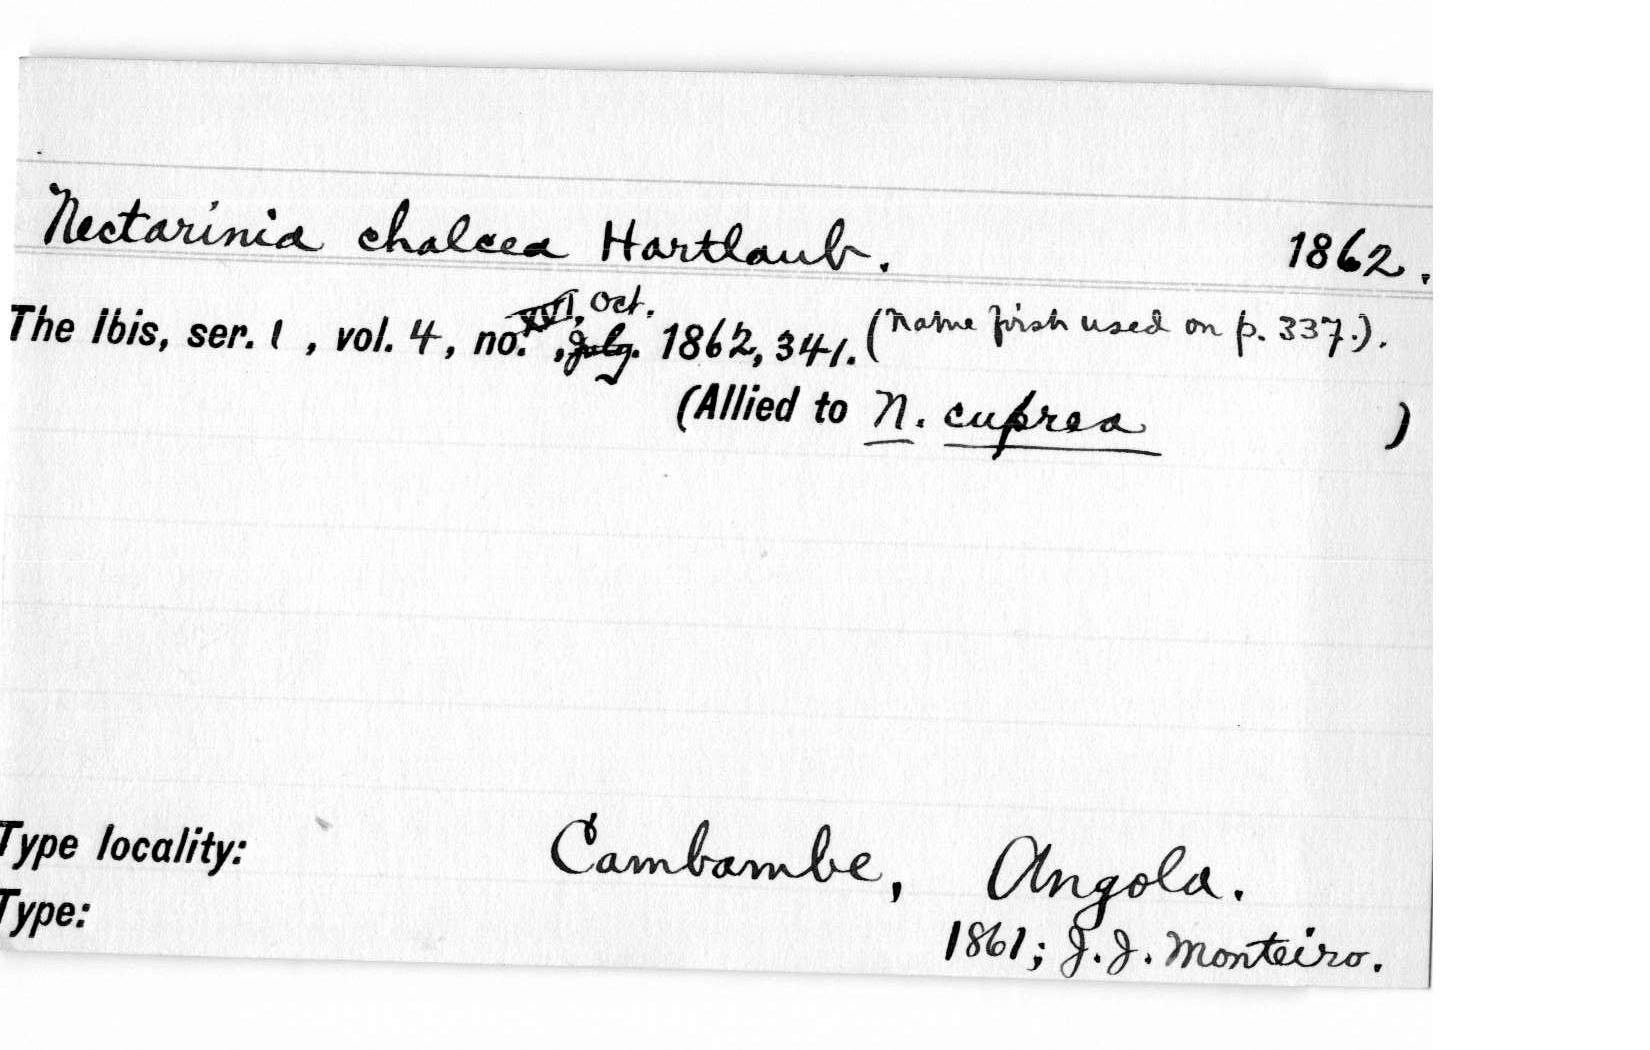 Nectarinia chalcea Hartlaub. 1862.
The Ibis, ser. 1, vol. 4, no. XVI, Oct. July. 1862, 341. (Name first used on p. 337.).
(Allied to N. cuprea )
Type locality: Cambambe, Angola.
Type: 1861; J. J. Monteiro.